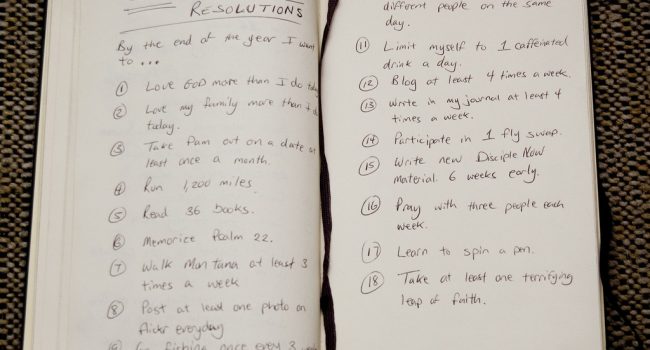 RESOLUTIONS
By the end of the year I want
to ...
① Love GOD more than I do today
② Love my family more than I do
today.
③ Take Pam out on a date at
least once a month.
④ Run 1,200 miles.
⑤ Read 36 books.
⑥ Memorize Psalm 22.
⑦ Walk Montana at least 3
times a week
⑧ Post at least one photo on
flickr everyday
⑨ Go fishing once every 3
different people on the same
day.
⑪ Limit myself to 1 caffeinated
drink a day.
⑫ Blog at least 4 times a week.
⑬ Write in my journal at least 4
times a week.
⑭ Participate in 1 fly swap.
⑮ Write new Disciple Now
material 6 weeks early.
⑯ Pray with three people each
week.
⑰ Learn to spin a pen.
⑱ Take at least one terrifying
leap of faith.